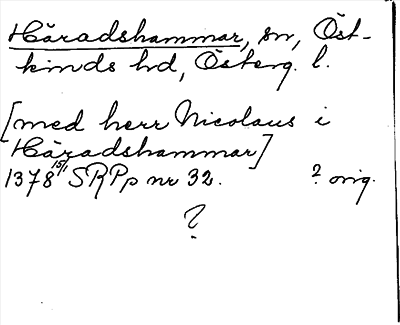 Häradshammar, sn, Öst-
kinds hd, Österg. l.
[med herr Nicolaus i
Häradshammar]
1378 15/1 SRPp nr 32. ? orig.
?